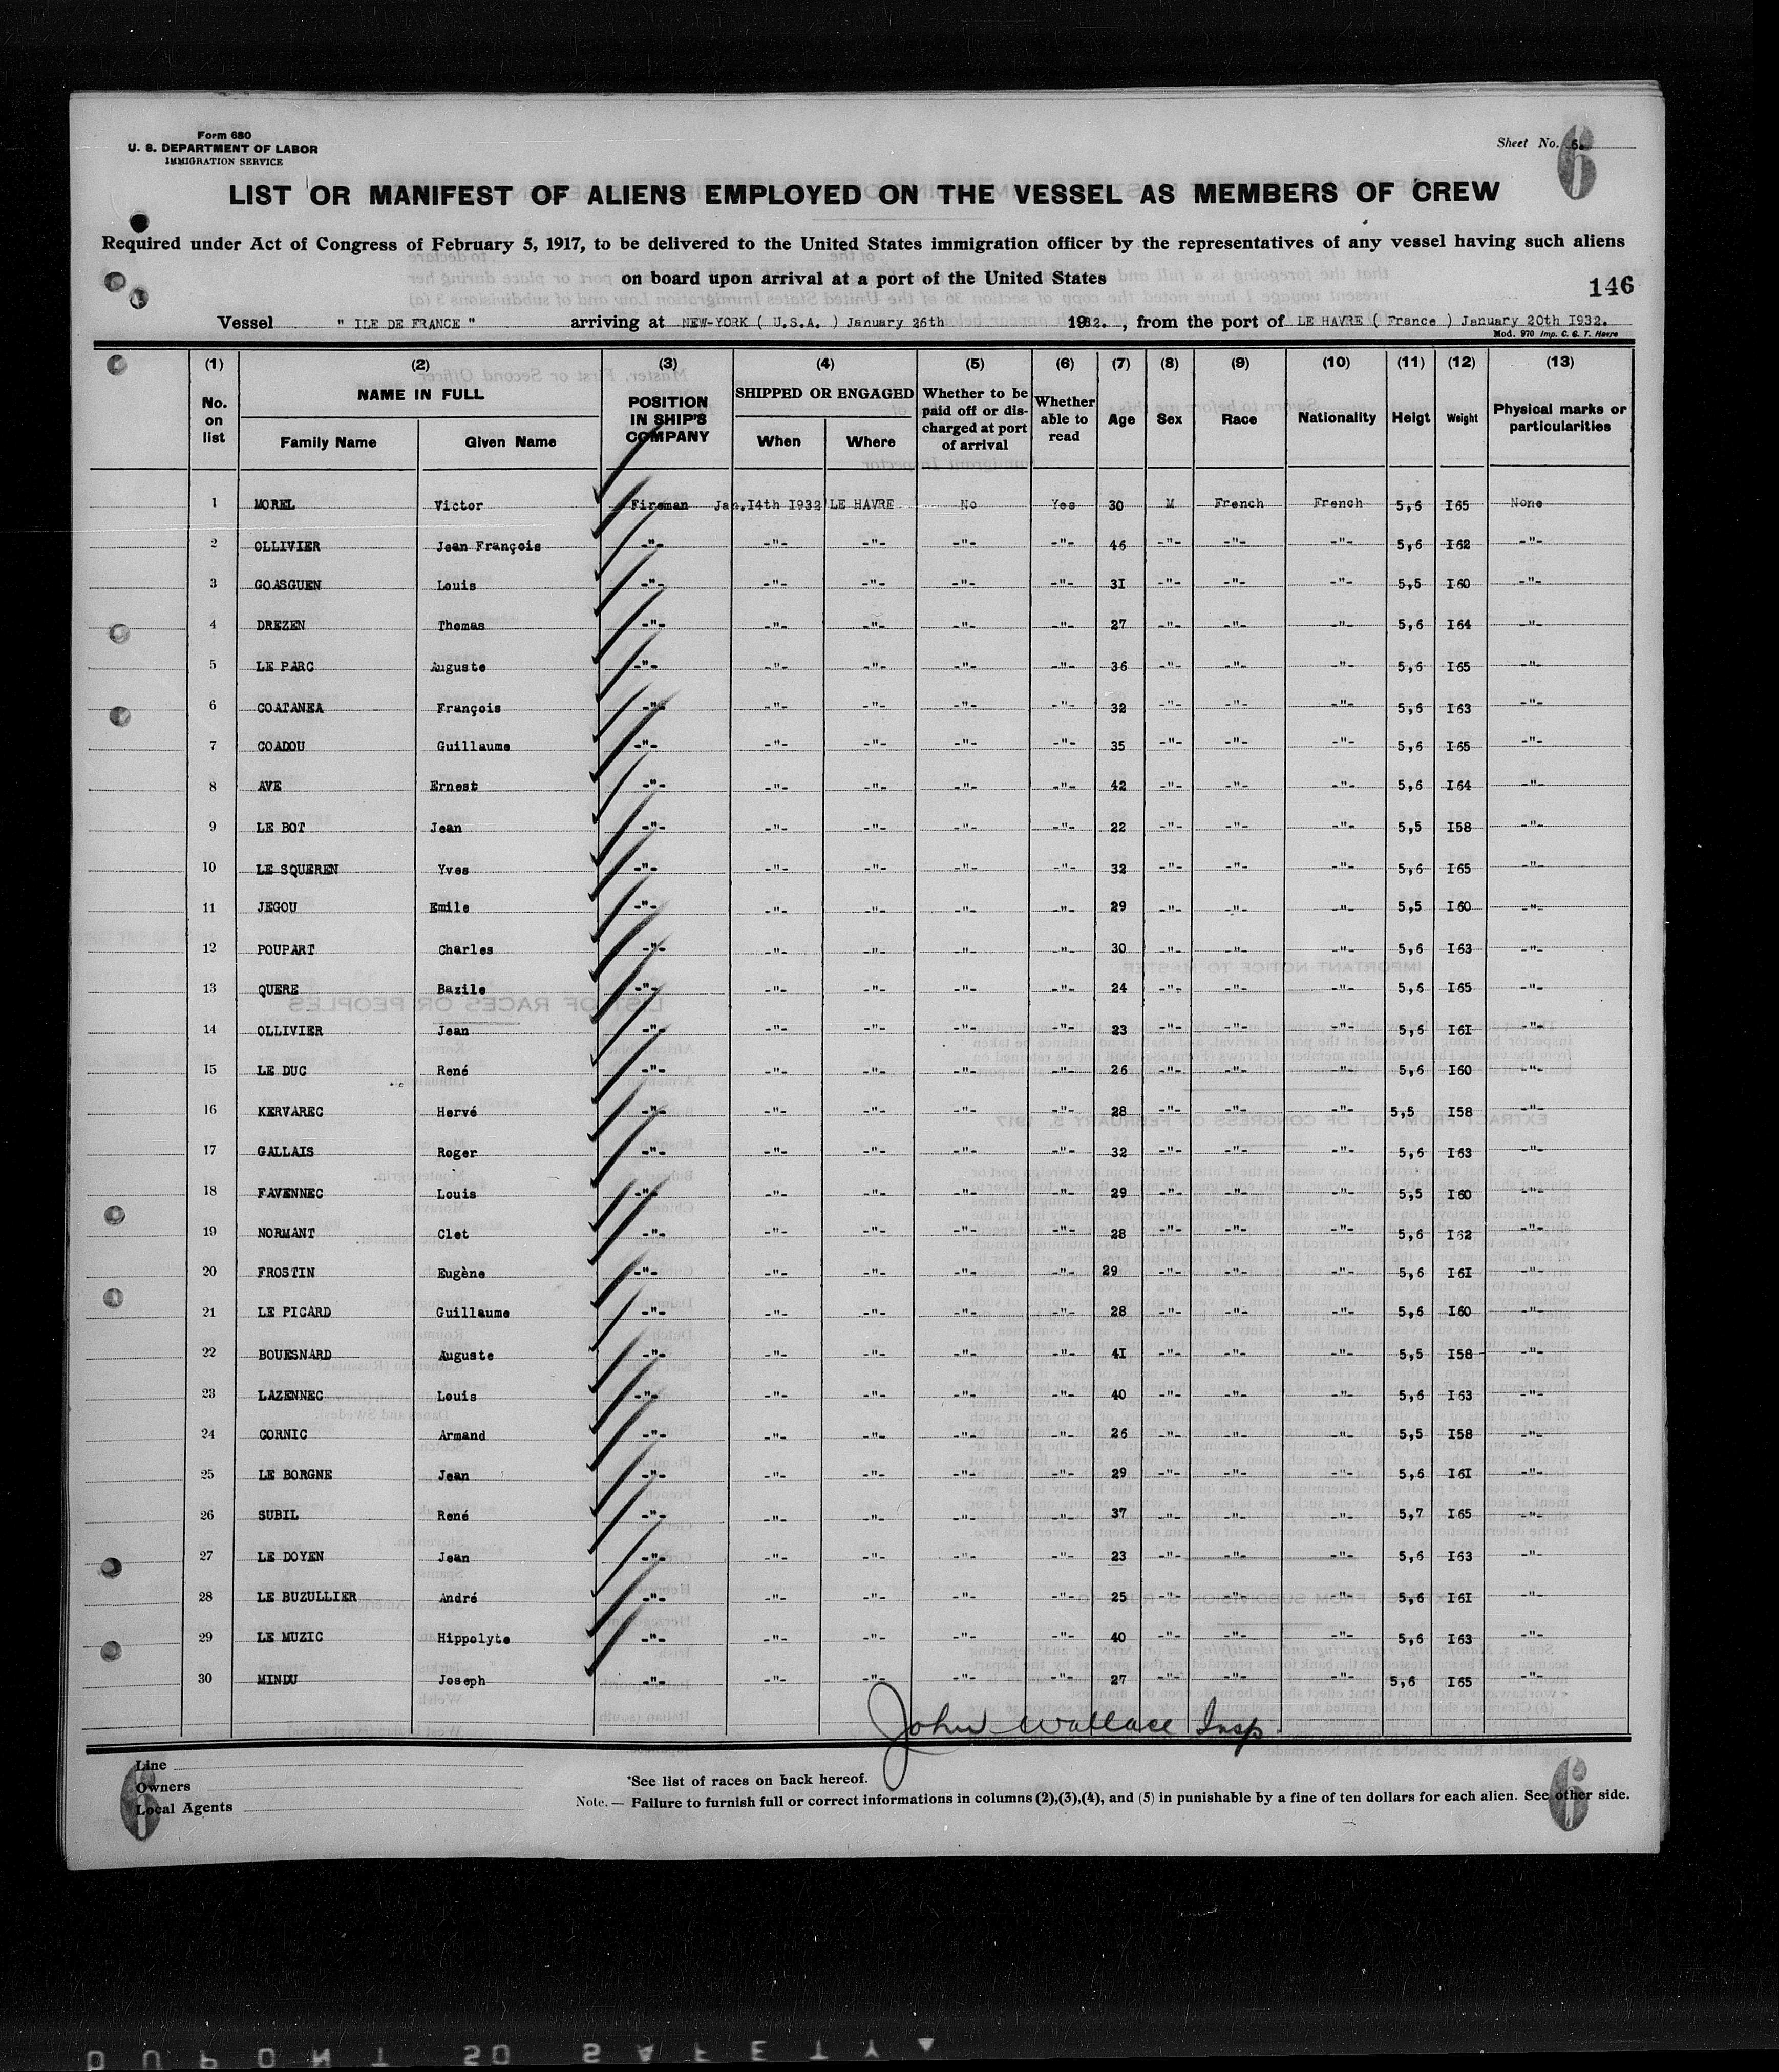 Form 680
U. S. DEPARTMENT OF LABOR
IMMIGRATION SERVICE
Sheet No. 6.
6
LIST OR MANIFEST OF ALIENS EMPLOYED ON THE VESSEL AS MEMBERS OF CREW
Required under Act of Congress of February 5, 1917, to be delivered to the United States immigration officer by the representatives of any vessel having such aliens
on board upon arrival at a port of the United States
146
Vessel " ILE DE FRANCE " arriving at NEW-YORK ( U.S.A. ) January 26th 1932. , from the port of LE HAVRE ( France ) January 20th I932.
Mod. 970 Imp. C. G. T. Havre
(1) (2) (3) (4) (5) (6) (7) (8) (9) (10) (11) (12) (13)
No. on list NAME IN FULL Family Name Given Name POSITION IN SHIP'S COMPANY SHIPPED OR ENGAGED When Where Whether to be paid off or discharged at port of arrival Whether able to read Age Sex Race Nationality Heigt Weight Physical marks or particularities
1 MOREL Victor Fireman Jan.I4th I932 LE HAVRE No Yes 30 M French French 5,6 I65 None
2 OLLIVIER Jean François -"- -"- -"- -"- -"- 46 -"- -"- -"- 5,6 I62 -"-
3 GOASGUEN Louis -"- -"- -"- -"- -"- 3I -"- -"- -"- 5,5 I60 -"-
4 DREZEN Thomas -"- -"- -"- -"- -"- 27 -"- -"- -"- 5,6 I64 -"-
5 LE PARC Auguste -"- -"- -"- -"- -"- 36 -"- -"- -"- 5,6 I65 -"-
6 COATANEA François -"- -"- -"- -"- -"- 32 -"- -"- -"- 5,6 I63 -"-
7 COADOU Guillaume -"- -"- -"- -"- -"- 35 -"- -"- -"- 5,6 I65 -"-
8 AVE Ernest -"- -"- -"- -"- -"- 42 -"- -"- -"- 5,6 I64 -"-
9 LE BOT Jean -"- -"- -"- -"- -"- 22 -"- -"- -"- 5,5 I58 -"-
10 LE SQUEREN Yves -"- -"- -"- -"- -"- 32 -"- -"- -"- 5,6 I65 -"-
11 JEGOU Emile -"- -"- -"- -"- -"- 29 -"- -"- -"- 5,5 I60 -"-
12 POUPART Charles -"- -"- -"- -"- -"- 30 -"- -"- -"- 5,6 I63 -"-
13 QUERE Bazile -"- -"- -"- -"- -"- 24 -"- -"- -"- 5,6 I65 -"-
14 OLLIVIER Jean -"- -"- -"- -"- -"- 23 -"- -"- -"- 5,6 I6I -"-
15 LE DUC René -"- -"- -"- -"- -"- 26 -"- -"- -"- 5,6 I60 -"-
16 KERVAREC Hervé -"- -"- -"- -"- -"- 28 -"- -"- -"- 5,5 I58 -"-
17 GALLAIS Roger -"- -"- -"- -"- -"- 32 -"- -"- -"- 5,6 I63 -"-
18 FAVENNEC Louis -"- -"- -"- -"- -"- 29 -"- -"- -"- 5,5 I60 -"-
19 NORMANT Clet -"- -"- -"- -"- -"- 28 -"- -"- -"- 5,6 I62 -"-
20 FROSTIN Eugène -"- -"- -"- -"- -"- 29 -"- -"- -"- 5,6 I6I -"-
21 LE PICARD Guillaume -"- -"- -"- -"- -"- 28 -"- -"- -"- 5,6 I60 -"-
22 BOUESNARD Auguste -"- -"- -"- -"- -"- 4I -"- -"- -"- 5,5 I58 -"-
23 LAZENNEC Louis -"- -"- -"- -"- -"- 40 -"- -"- -"- 5,6 I63 -"-
24 CORNIC Armand -"- -"- -"- -"- -"- 26 -"- -"- -"- 5,5 I58 -"-
25 LE BORGNE Jean -"- -"- -"- -"- -"- 29 -"- -"- -"- 5,6 I6I -"-
26 SUBIL René -"- -"- -"- -"- -"- 37 -"- -"- -"- 5,7 I65 -"-
27 LE DOYEN Jean -"- -"- -"- -"- -"- 23 -"- -"- -"- 5,6 I63 -"-
28 LE BUZULLIER André -"- -"- -"- -"- -"- 25 -"- -"- -"- 5,6 I6I -"-
29 LE MUZIC Hippolyte -"- -"- -"- -"- -"- 40 -"- -"- -"- 5,6 I63 -"-
30 MINDU Joseph -"- -"- -"- -"- -"- 27 -"- -"- -"- 5,6 I65 -"-
John Wallace Insp.
Line
Owners
Local Agents
6
*See list of races on back hereof.
Note. — Failure to furnish full or correct informations in columns (2),(3),(4), and (5) in punishable by a fine of ten dollars for each alien. See other side.
6
DUPONT SO SAFETY